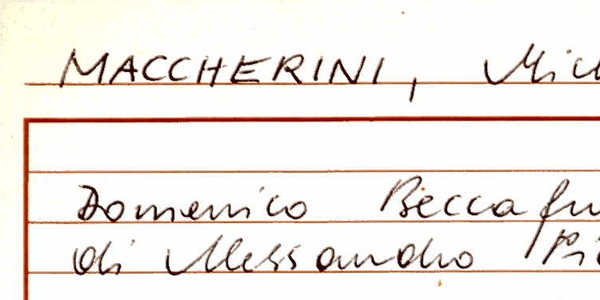 MACCHERINI, Mic
Domenico Beccafu
di Alessandro Pi